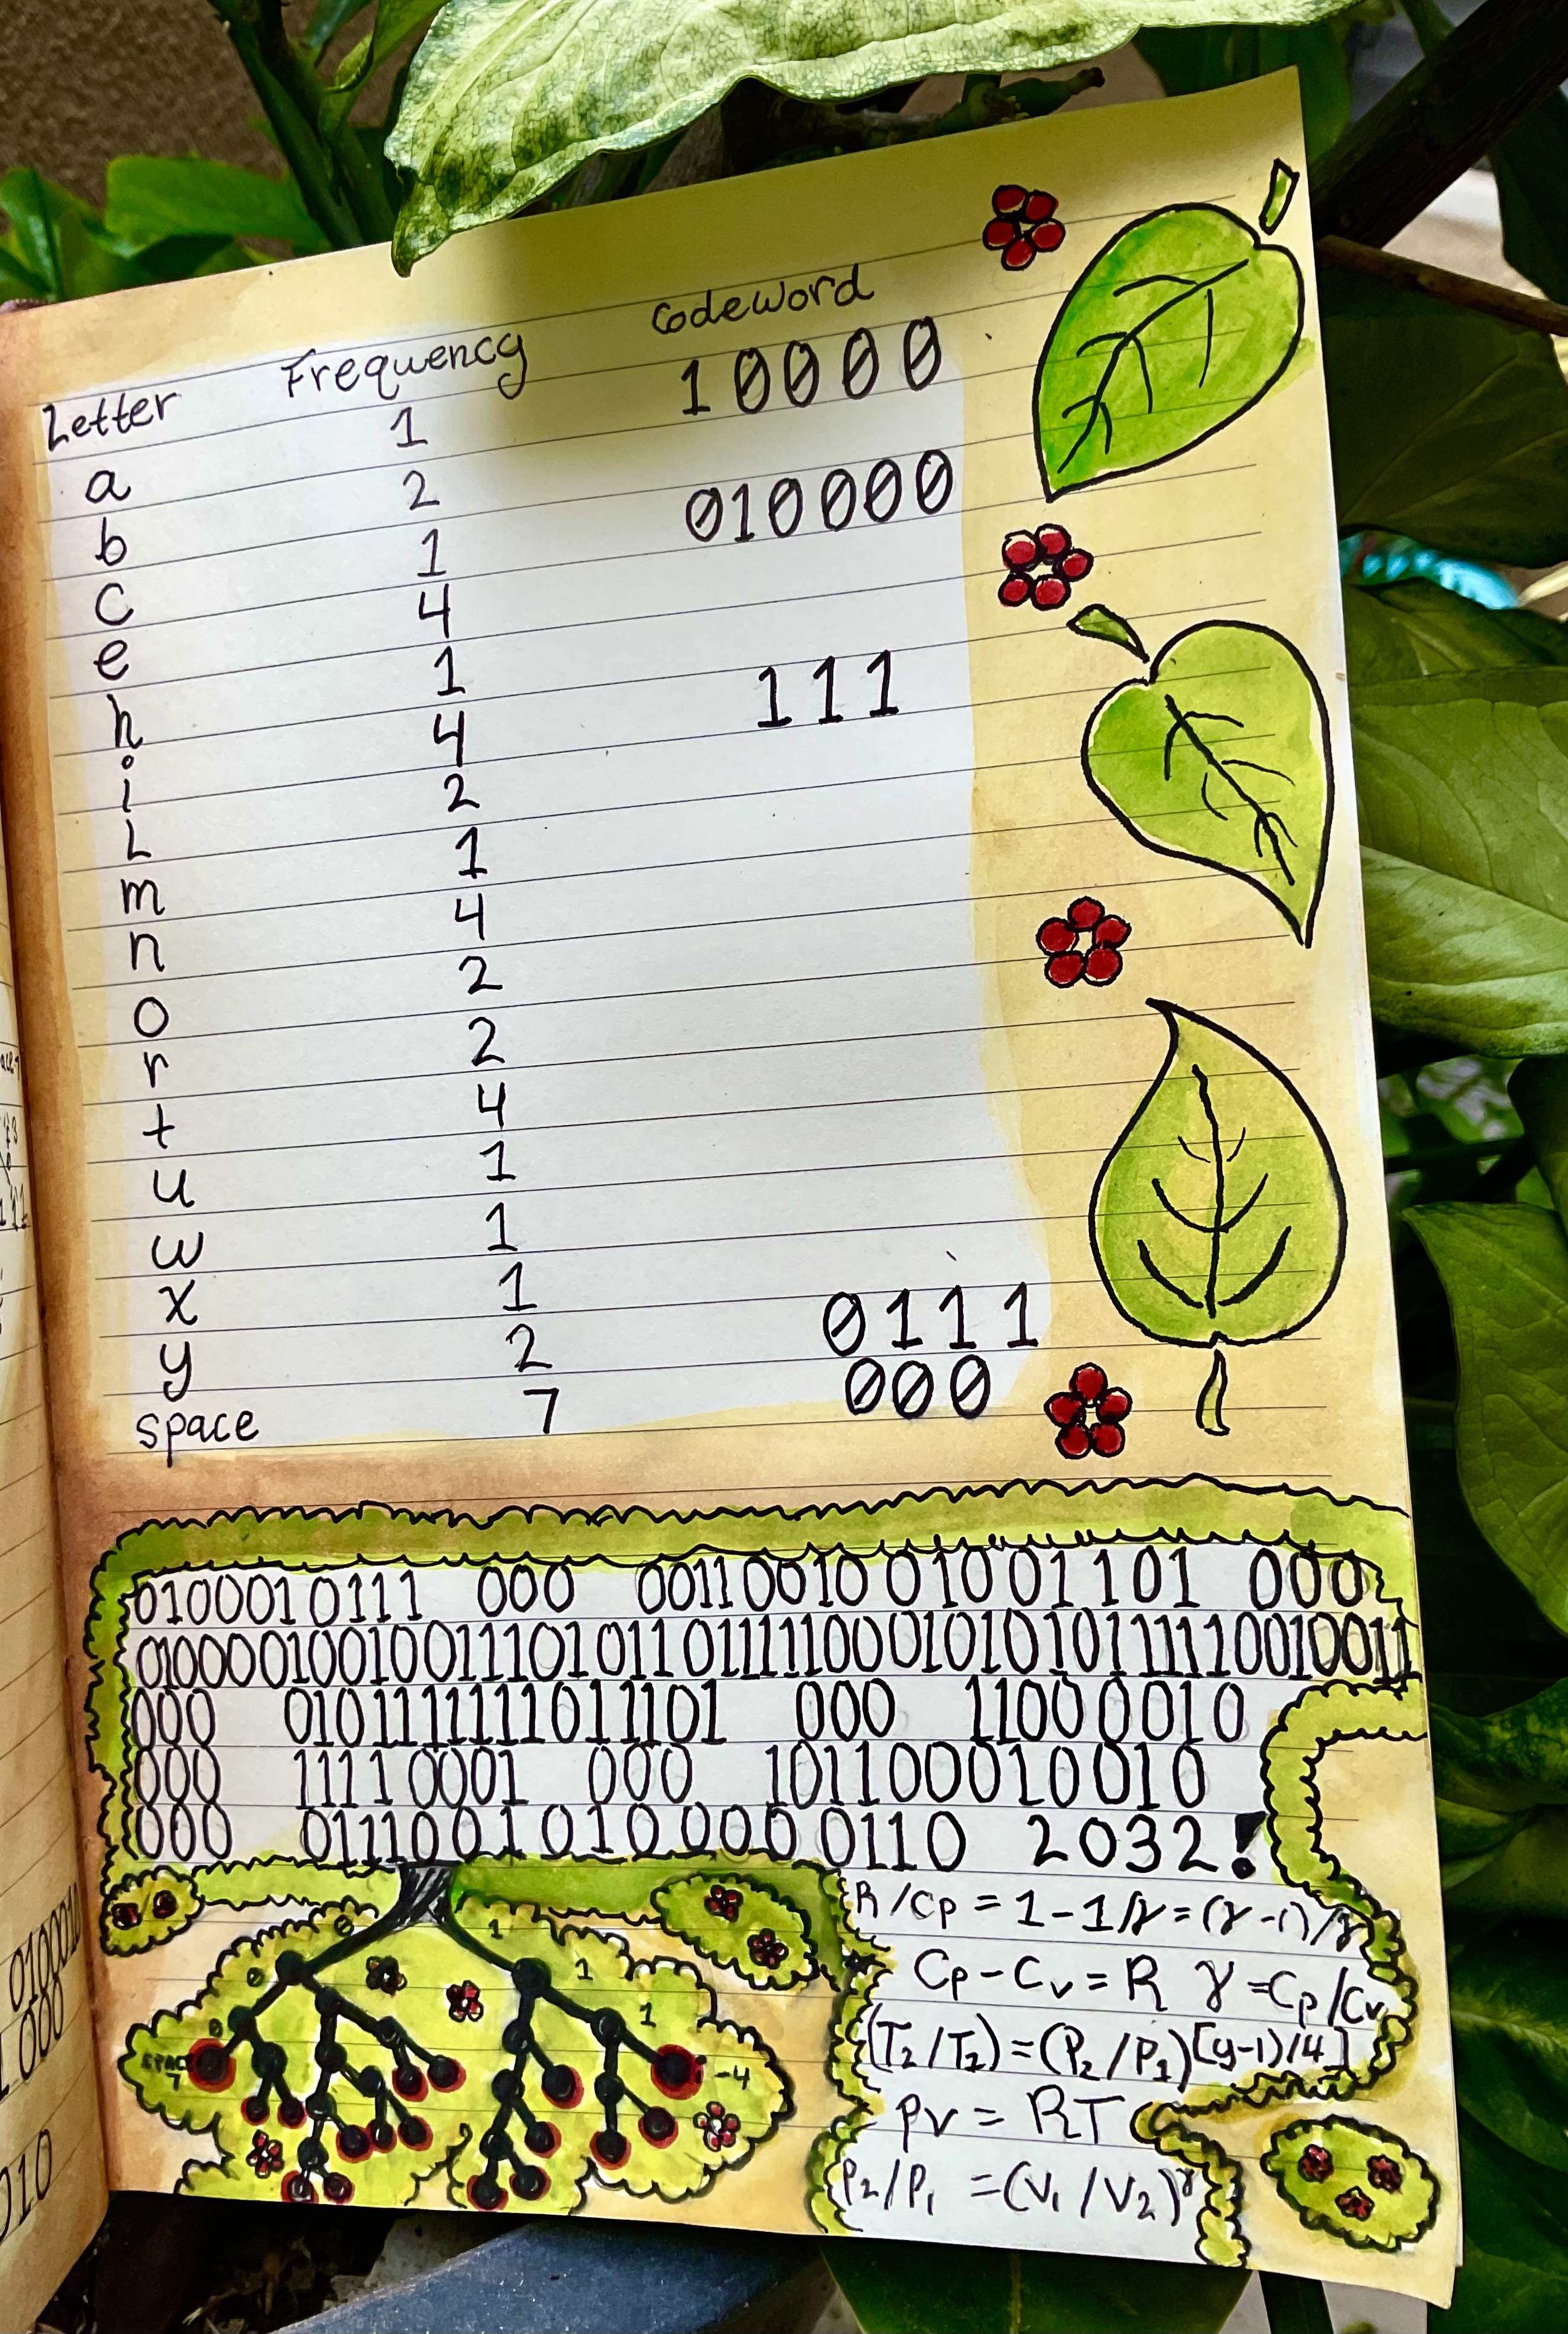 Letter Frequency Codeword
a 1 10000
b 2
c 1 010000
e 4
h 1
i 4 111
L 2
m 1
n 4
o 2
r 2
t 4
u 1
w 1
x 1
y 2 0111
space 7 000
0100010111 000 00110010 01001101 000
010000100100111010110111110001010101111110010011
000 0101111111101101 000 11000010
000 11110001 000 101100010010
000 0111001010000 0110 2032!
0 1
0 1
0 1
SPACE 7 i -4
R/Cp = 1 - 1/γ = (γ-1)/γ
Cp - Cv = R γ = Cp/Cv
(T2/T2) = (P2/P1)[y-1)/4]
pv = RT
P2/P1 = (V1/V2)γ